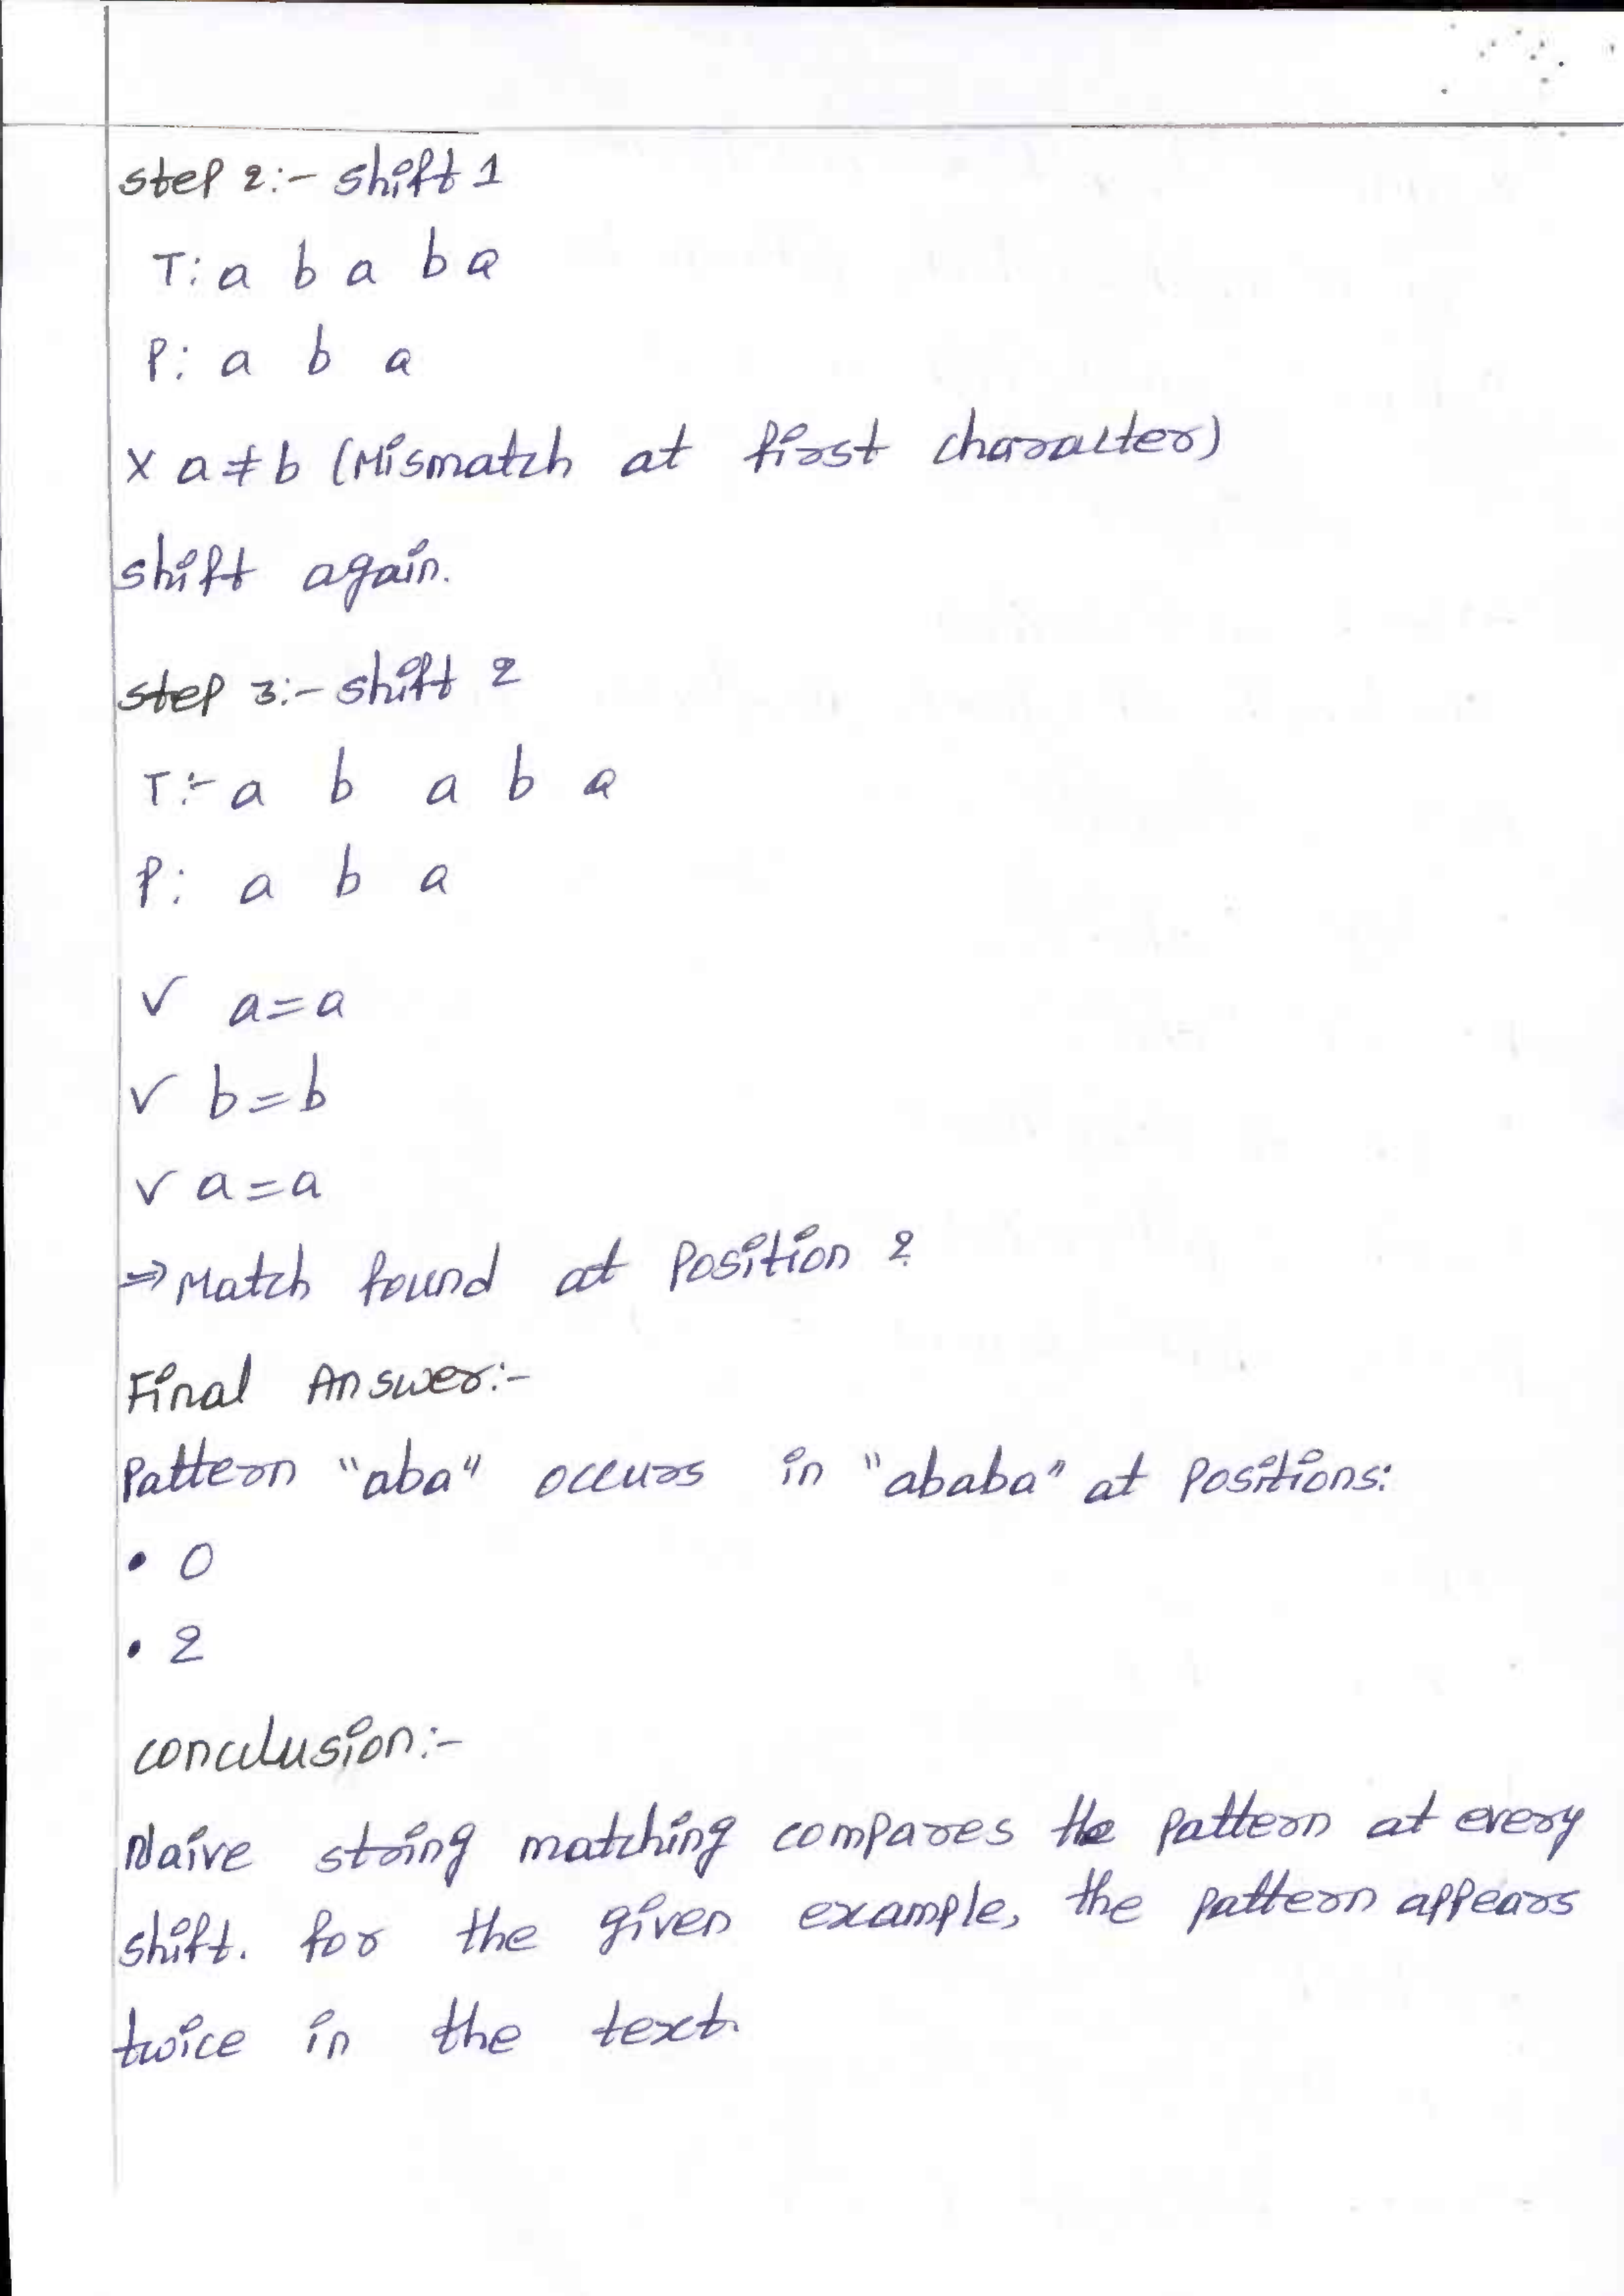 step 2:- shift 1
T: a b a b a
P: a b a
x a≠b (Mismatch at first character)
shift again.
step 3:- shift 2
T:- a b a b a
P: a b a
✓ a=a
✓ b=b
✓ a=a
⇒ Match found at position 2
Final Answer:-
Pattern "aba" occurs in "ababa" at positions:
• 0
• 2
conclusion:-
Naive string matching compares the pattern at every
shift. for the given example, the pattern appears
twice in the text.